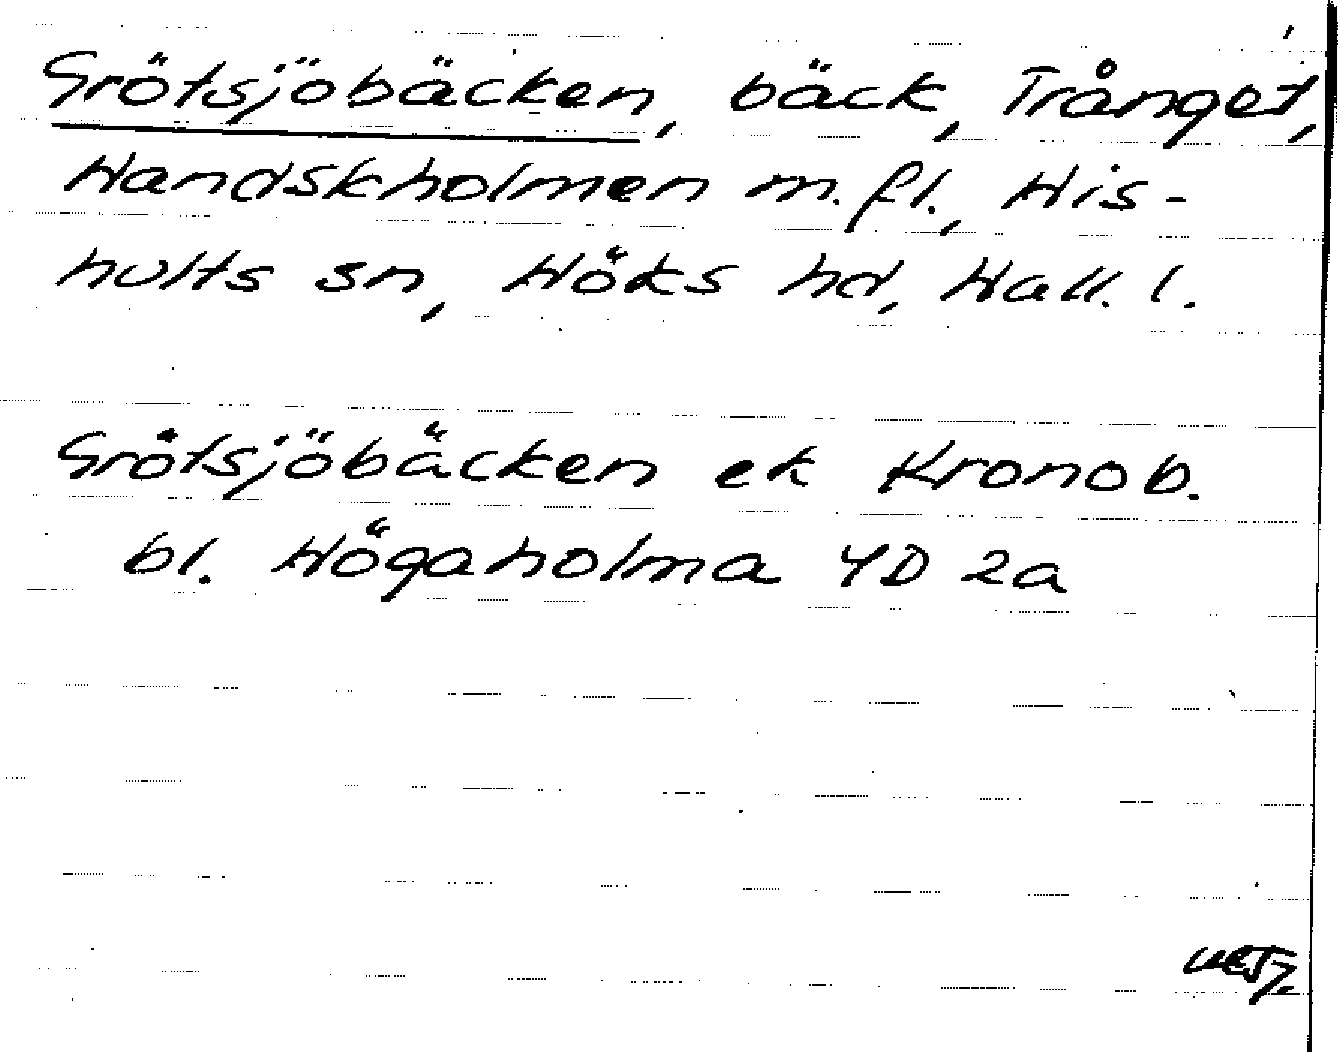 Grötsjöbäcken, bäck, Trånget,
Handskholmen m. fl., His-
hults sn, Höks hd, Hall. l.
Grötsjöbäcken ek Kronob.
bl. Högaholma 4D 2a